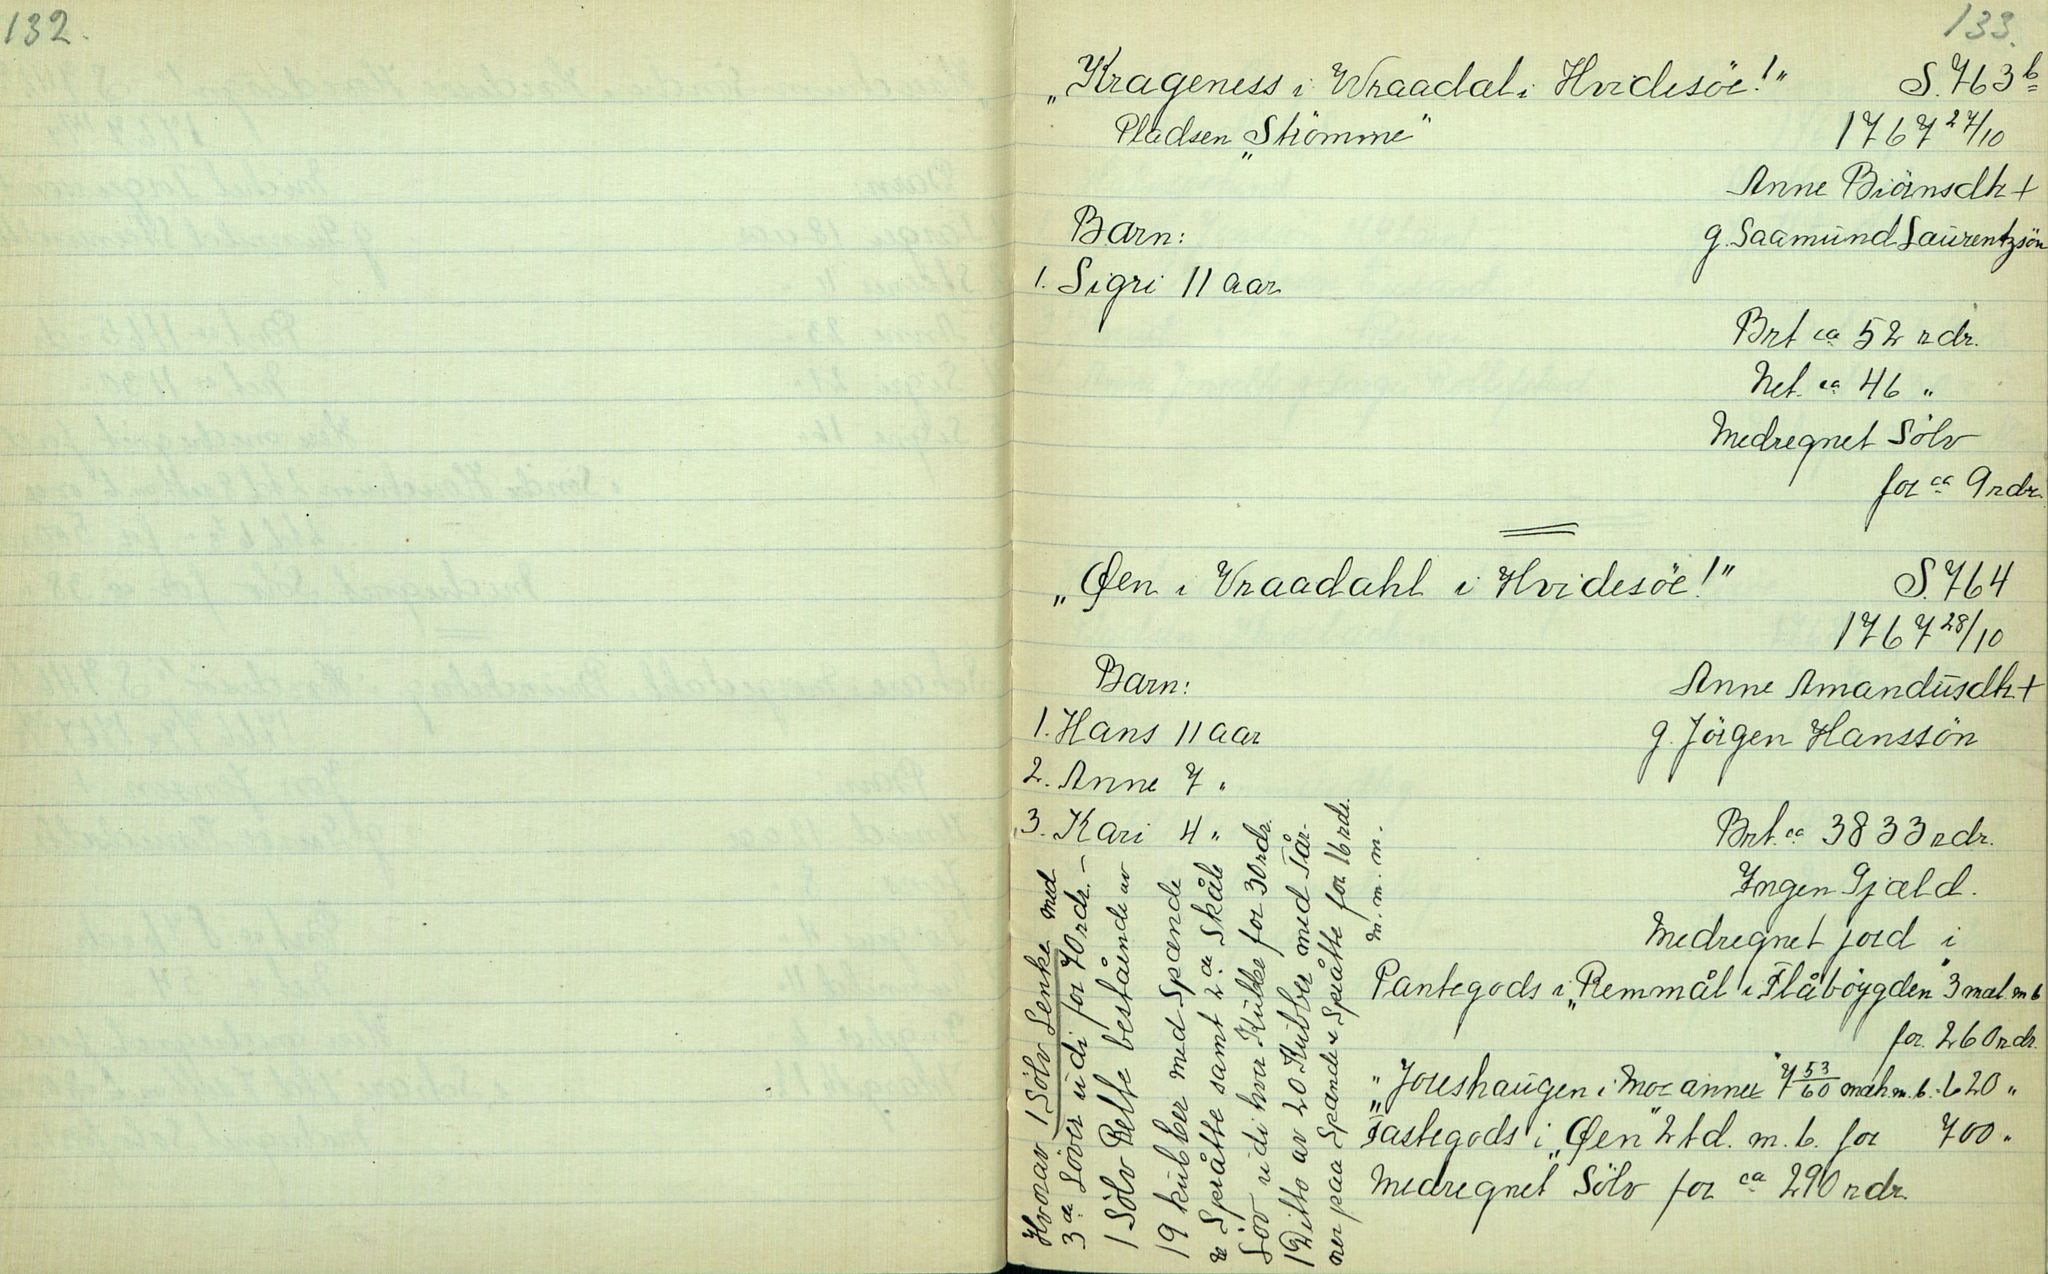 132.
133.
„Krageness i Wraadal i Hvidesöe!" S. 763 b
Pladsen „Strömme" 1767 27/10
Anne Biörnsdtr +
Barn: g. Saamund Laurentzsön
1. Sigri 11 aar
Brt ca 52 rdr.
Net. ca 46 "
Medregnet Sölv
for ca 9 rdr.
„Øen i Vraadahl i Hvidesöe!" S. 764
1767 28/10
Barn: Anne Amandusdtr +
1. Hans 11 aar g. Jörgen Hanssön
2. Anne 7 "
3. Kari 4 " Brt. ca 3833 rdr.
Ingen Gjæld.
Medregnet jord i
Pantegods i „Remmål i Flåböygden" 3 mæl. m b
for 260 rdr.
„Joreshaugen i 7 53/60 mæl. m. b. - 620 "
Fastegods i „Øen" 2 td. m. b. for 700 "
Medregnet Sölv for ca 290 rdr.
Hvorav 1 Sölv Lenke med
3 Löver udi for 70 rdr. –
1 Sölv Belte bestående av
19 kubber med Spænde
& Språtte samt 2 Skåle
Söv udi hver Kubbe for 30 rdr.
1 Ditto av 20 Kubber med Tår-
ner paa Spænde & Språtte for 16 rdr.
m. m. m.